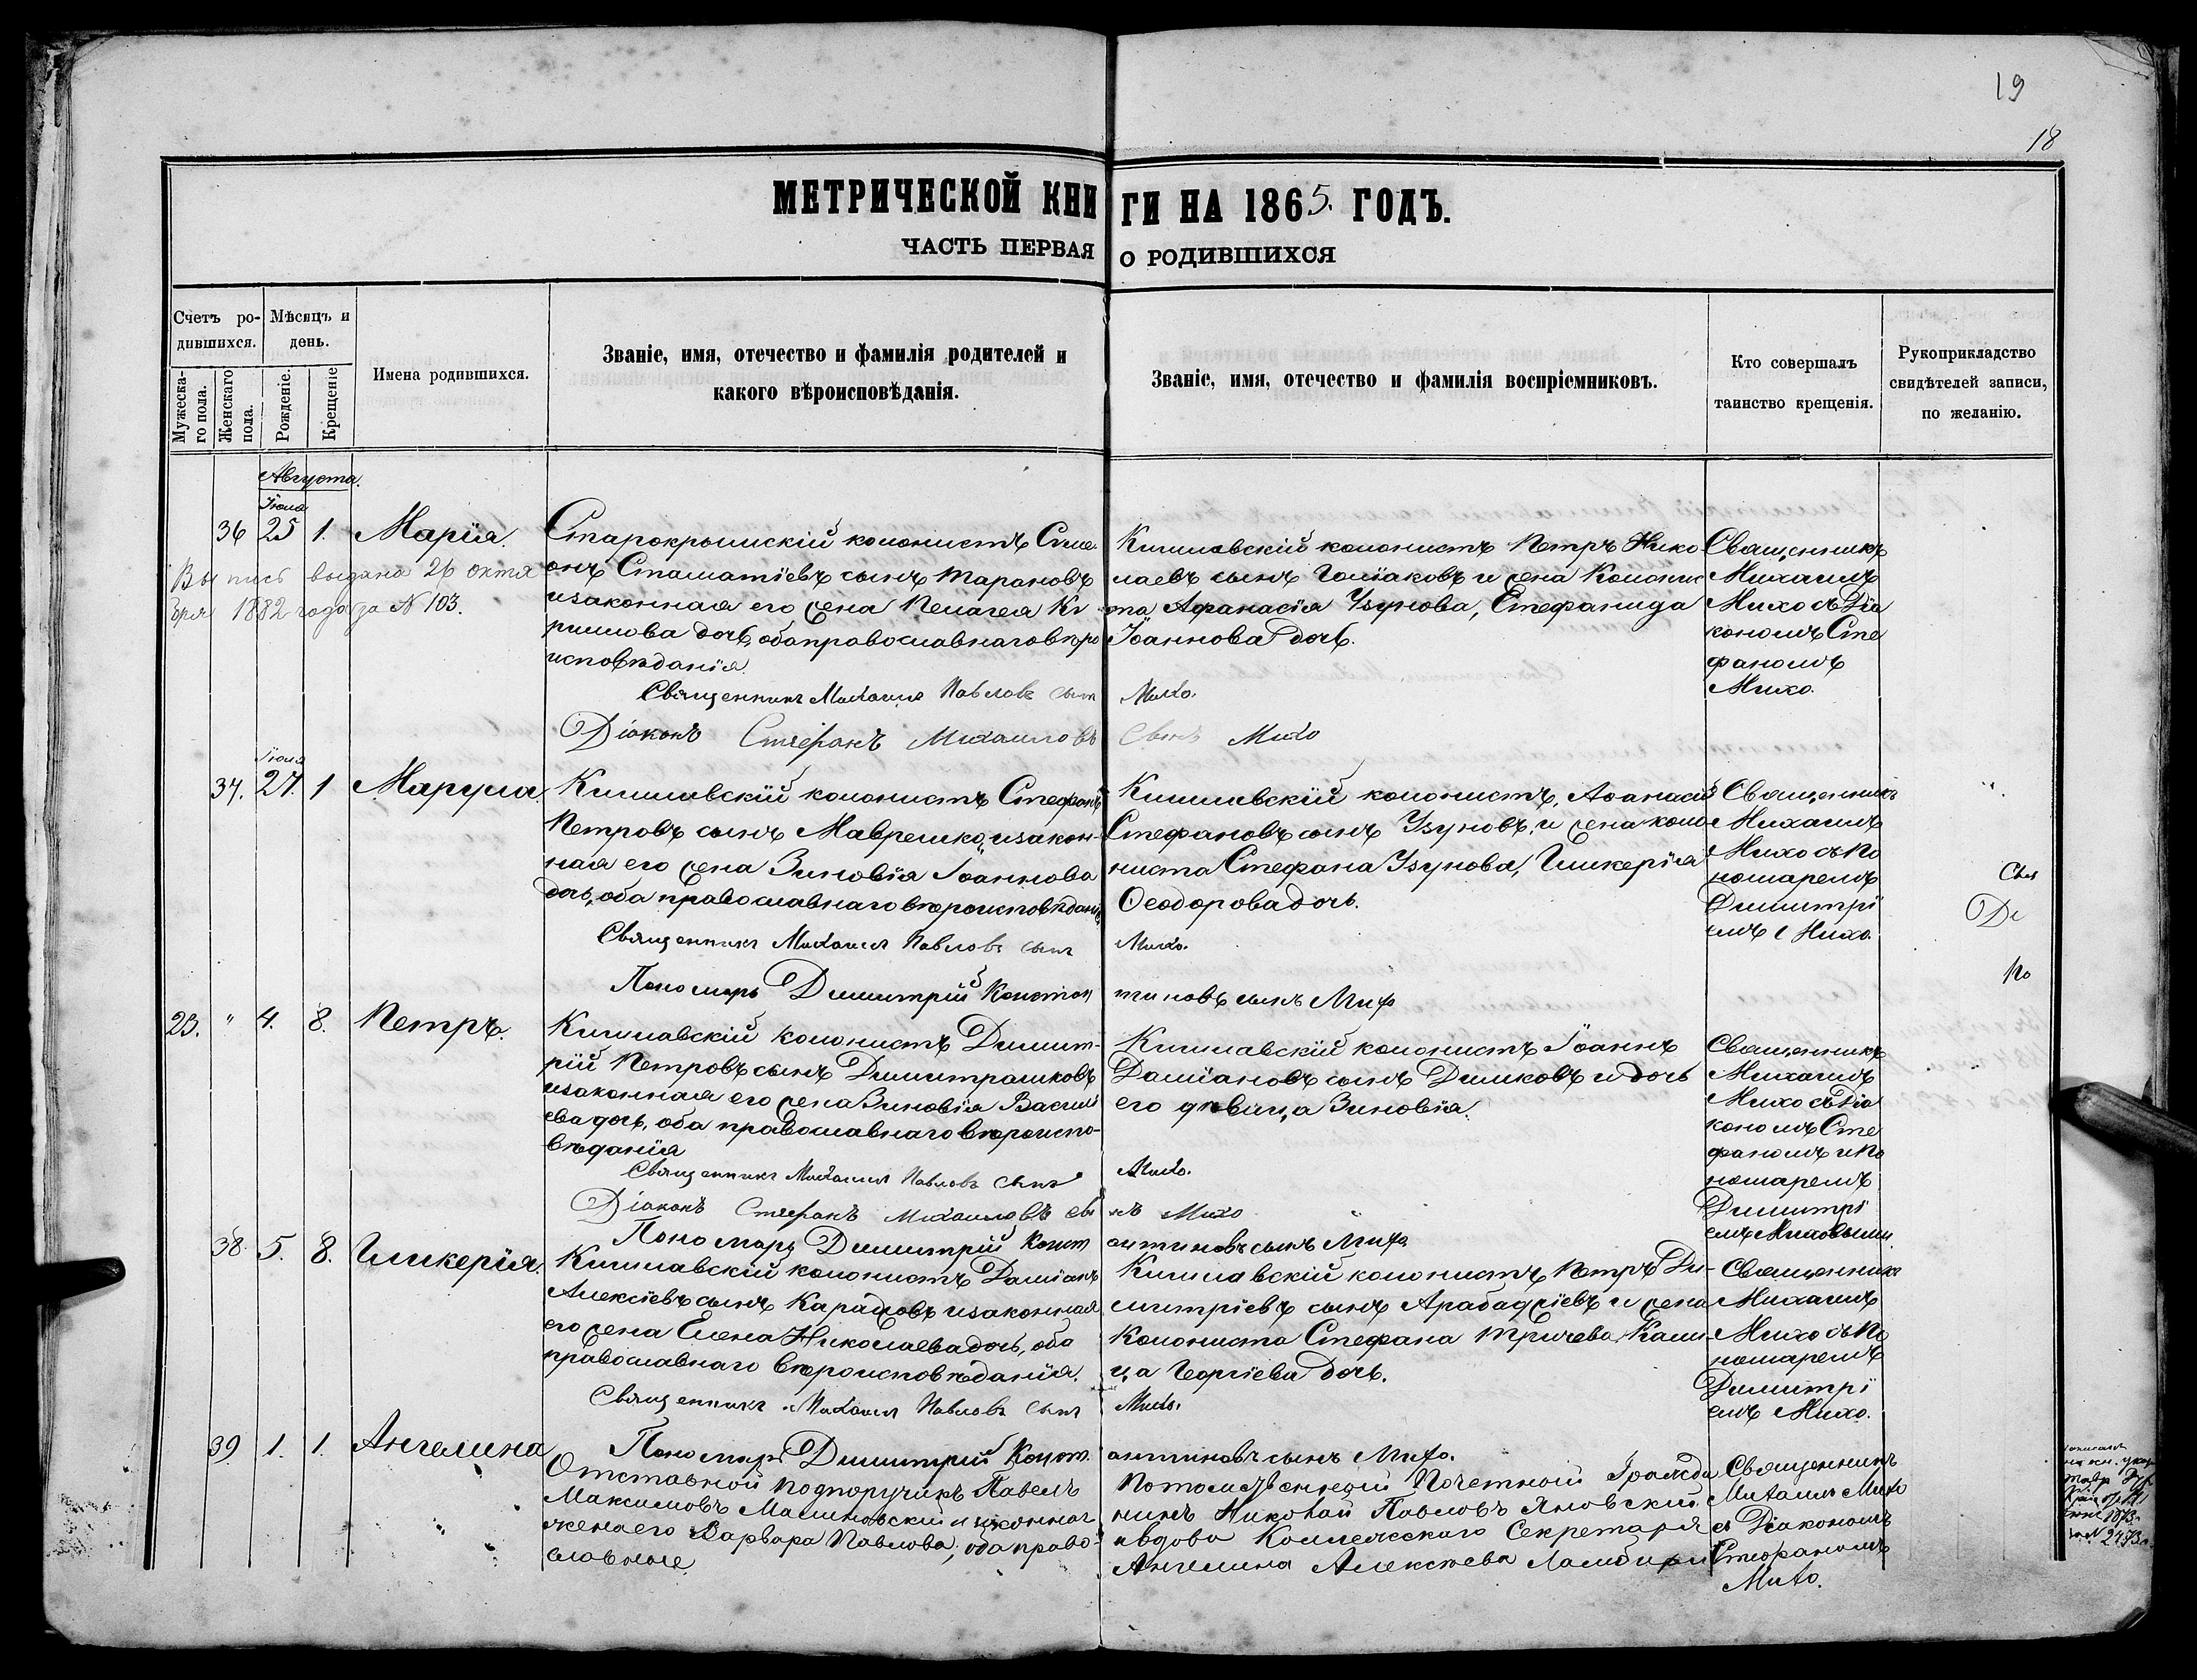 19
18
МЕТРИЧЕСКОЙ КНИГИ НА 1865. ГОДЪ.
ЧАСТЬ ПЕРВАЯ О РОДИВШИХСЯ
Счетъ ро-
дившихся.
Мѣсяцъ и
день.
Мужеска-
го пола.
Женскаго
пола.
Рожденіе.
Крещеніе
Имена родившихся.
Званіе, имя, отечество и фамилія родителей и
какого вѣроисповѣданія.
Званіе, имя, отечество и фамилія воспріемниковъ.
Кто совершалъ
таинство крещенія.
Рукоприкладство
свидѣтелей записи,
по желанію.
Августа.
Іюля
36 25 1. Марія.
Выпись выдана 26 октя
бря 1882 года за N 103.
Старокрымскій колонистъ Симе
онъ Стаматіевъ сынъ Тарановъ
и законная его жена Пелагея Ки
рилова дочь, оба православнаго вѣро
исповѣданія.
Священникъ Михаилъ Павловъ сынъ Михо.
Діаконъ Стефанъ Михаиловъ Сынъ Михо
Кишлавскій колонистъ Петръ Нико
лаевъ сынъ Голіаковъ и жена колонис
та Афанасія Узунова, Стефанида
Іоаннова дочь.
Священникъ
Михаилъ
Михо съ Діа
кономъ Сте
фаномъ
Михо.
Іюля
37. 27. 1 Марула.
Кишлавскій колонистъ Стефанъ
Петровъ сынъ Мавремко, и закон-
ная его жена Зиновія Іоаннова
дочь, оба православнаго вѣроисповѣданія.
Священникъ Михаилъ Павловъ сынъ Михо.
Пономарь Димитрій Константиновъ сынъ Михо
Кишлавскій колонистъ, Аѳанасій
Стефановъ сынъ Узуновъ, и жена коло
ниста Стефана Узунова, Гликерія
Ѳеодорова дочь.
Священникъ
Михаилъ
Михо съ По
номаремъ
Димитрі
емъ Михо.
Свя
Ді
По
23. " 4. 8. Петръ.
Кишлавскій колонистъ Димит-
рій Петровъ сынъ Димитрашковъ
и законная его жена Зиновія Васильі
ева дочь, оба православнаго вѣроиспо-
вѣданія
Священникъ Михаилъ Павловъ сынъ Михо.
Діаконъ Стефанъ Михаиловъ сынъ Михо
Пономарь Димитрій Константиновъ сынъ Михо
Кишлавскій колонистъ Іоаннъ
Даміановъ сынъ Димковъ и дочь
его дѣвица Зиновія.
Священникъ
Михаилъ
Михо съ Діа
кономъ Сте
фаномъ и По
номаремъ
Димитрі
емъ Миховыми.
38. 5. 8. Гликерія.
Кишлавскій колонистъ Даміанъ
Алексіевъ сынъ Караджовъ и законная
его жена Елена Николаева дочь, оба
православнаго вѣроисповѣданія.
Священникъ Михаилъ Павловъ сынъ Михо.
Пономарь Димитрій Константиновъ сынъ Михо.
Кишлавскій колонистъ Петръ Ди-
митріевъ сынъ Арабаджіевъ и жена
колониста Стефана Тричева, Кали
ца Георгіева дочь.
Священникъ
Михаилъ
Михо съ По
номаремъ
Димитрі
емъ Михо.
39 1. 1. Ангелина
Отставной подпоручикъ Павелъ
Максимовъ Малиновскій и законная
жена его Варвара Павлова, оба право-
славные
Потомственный Почетный Гражда
нинъ Николай Павловъ Яновскій
и вдова Коллежскаго Секретаря
Ангелина Алексѣева
Священникъ
Михаилъ Михо
съ Діакономъ
Стефаномъ
Михо.